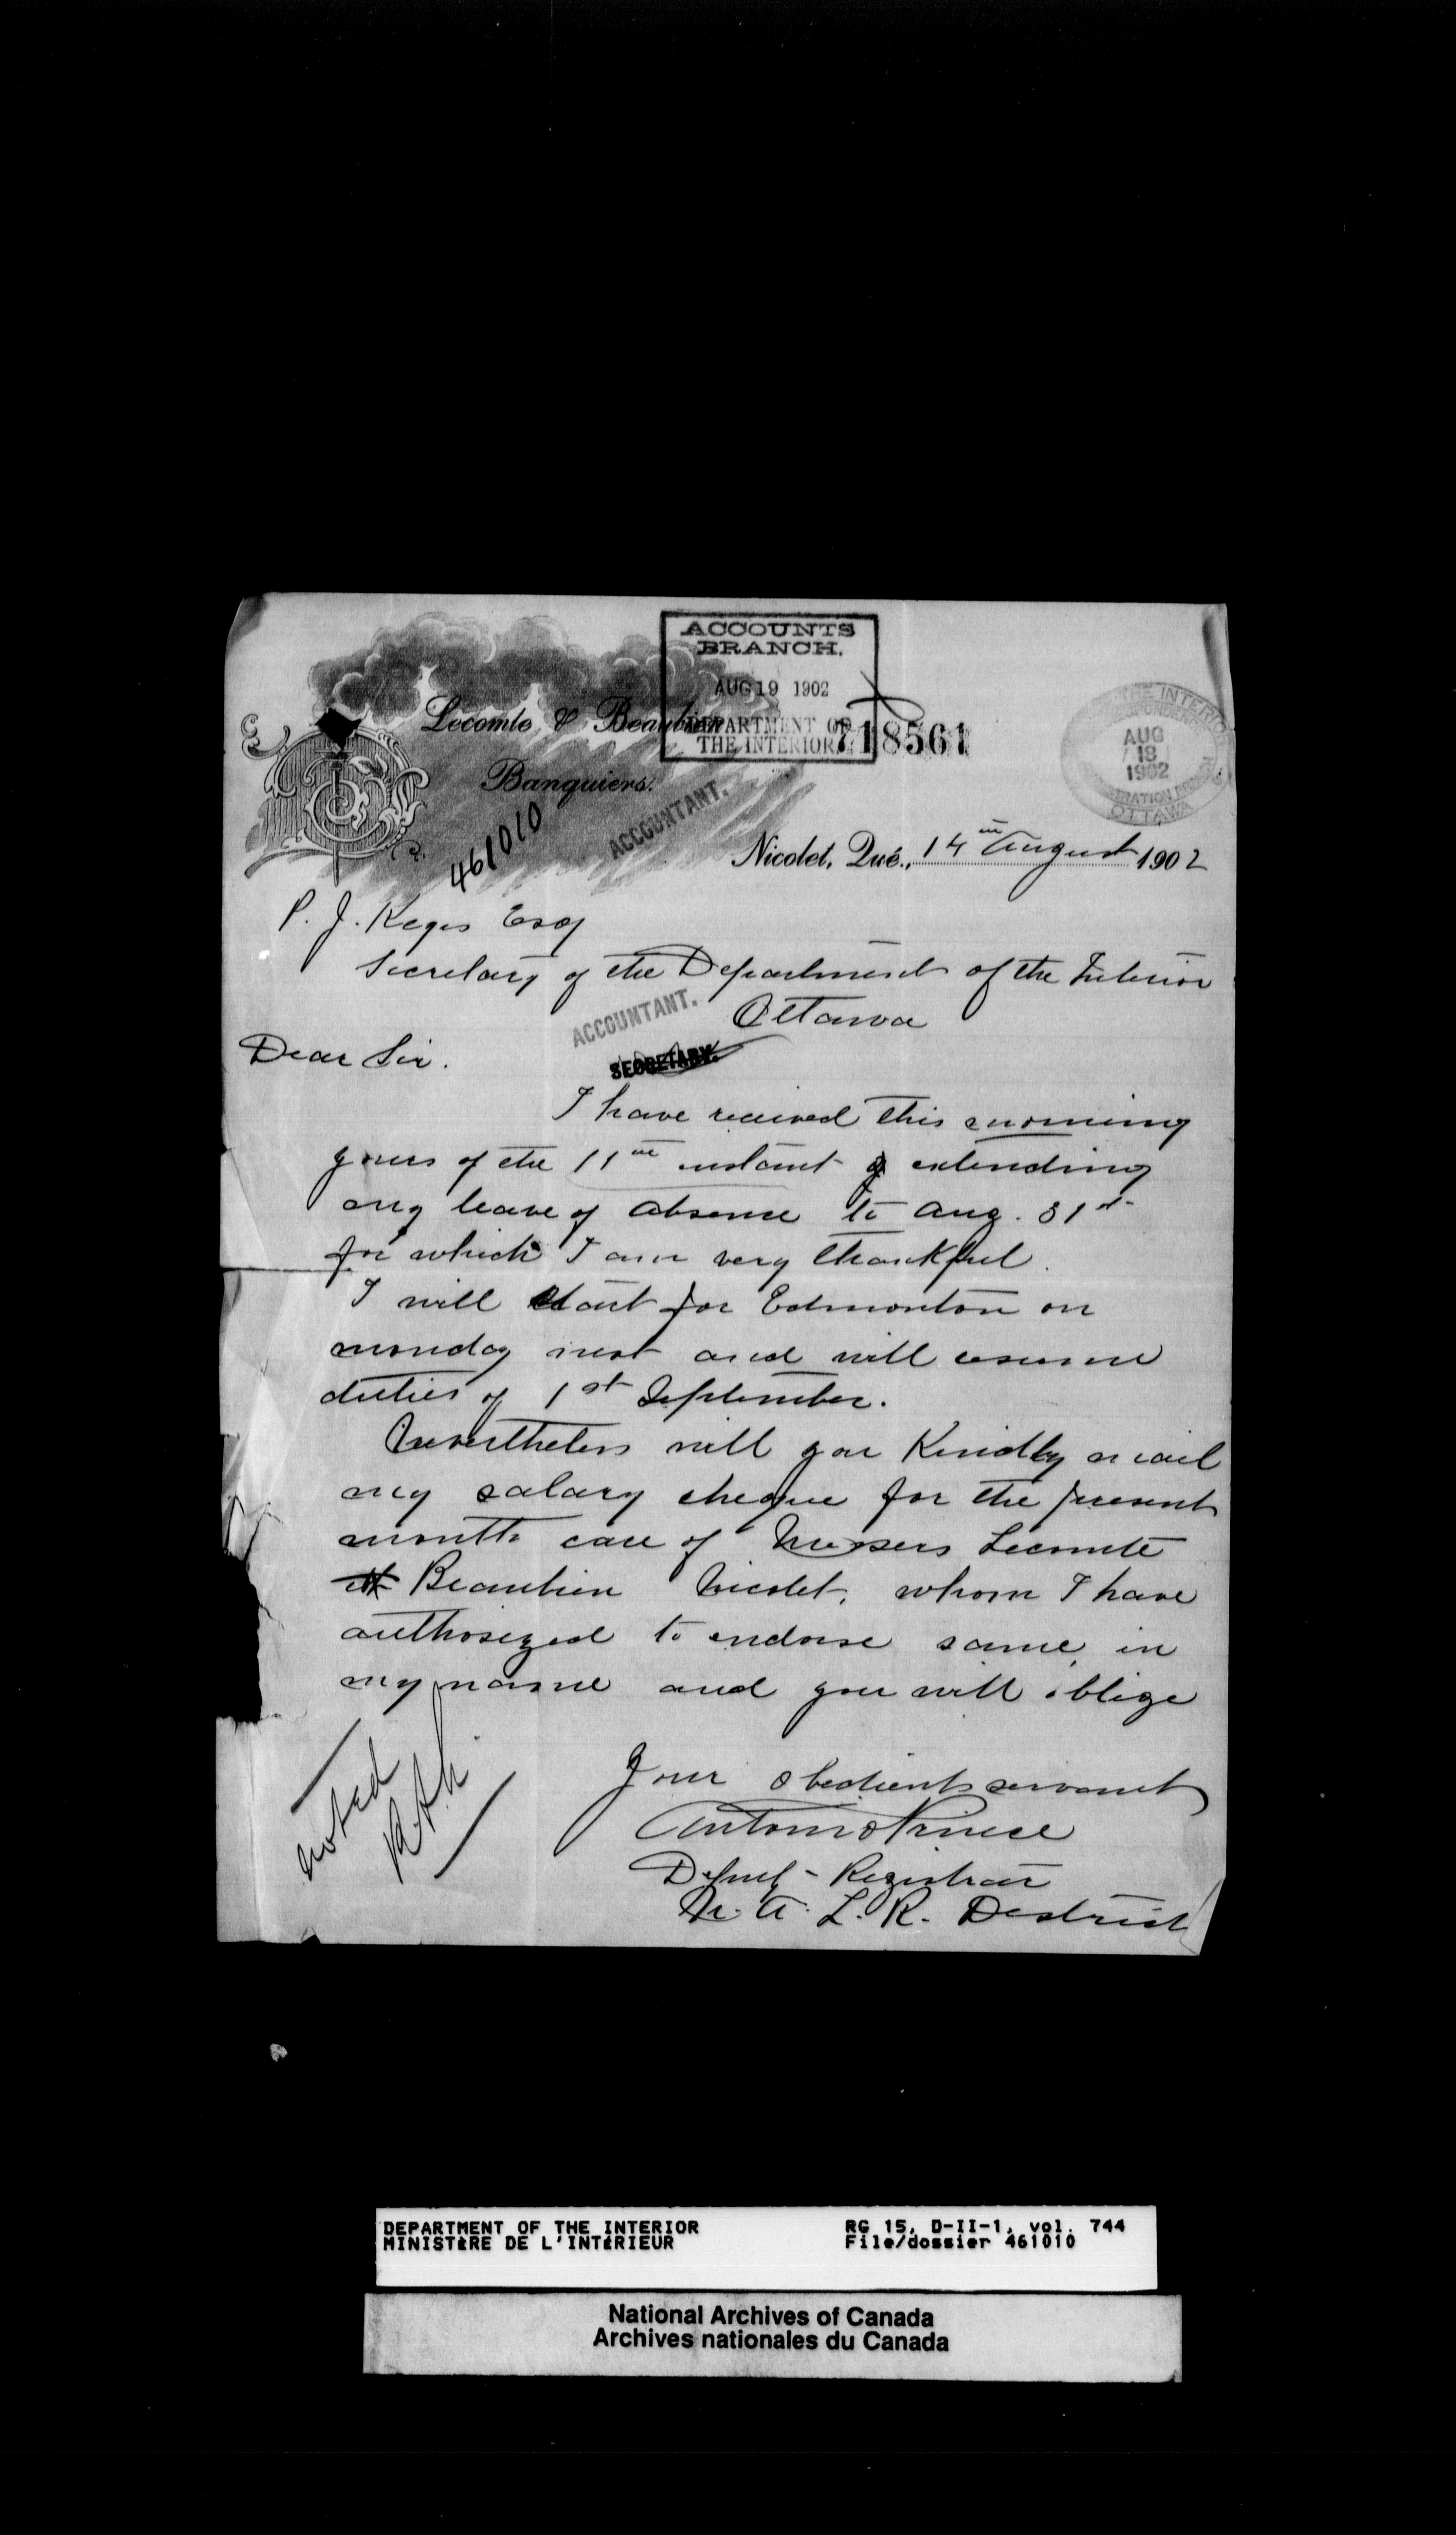 ACCOUNTS
BRANCH.
AUG 19 1902
DEPARTMENT OF
THE INTERIOR
718561
THE INTERIOR
AUG
18
1902
OTTAWA
Lecomte & Beaubien
Banquiers.
461010
ACCOUNTANT.
Nicolet, Qué., 14th August 1902
P. J. Keyes Esq
Secretary of the Department of the Interior
Ottawa
ACCOUNTANT.
SECRETARY.
Dear Sir.
I have received this morning
yours of the 11th instant extending
my leave of absence to Aug. 31st
for which I am very thankful.
I will start for Edmonton on
monday next and will resume
duties of 1st September.
Nevertheless will you Kindly mail
my salary cheque for the present
month care of Messers Lecomte
& Beaubien Nicolet, whom I have
authorized to endorse same in
my name and you will oblige
Your obedient servant
Antonio Prince
Deputy-Registrar
N. A. L. R. District
noted
DEPARTMENT OF THE INTERIOR
MINISTÈRE DE L'INTÉRIEUR
RG 15, D-II-1, vol. 744
File/dossier 461010
National Archives of Canada
Archives nationales du Canada